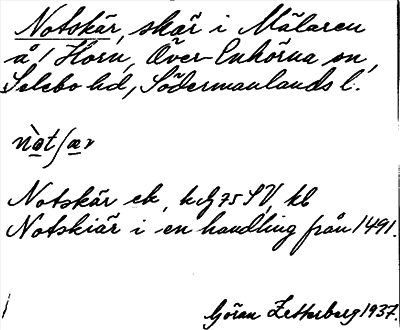 Notskär, skär i Mälaren
å/ Horn, Över-Enhörna sn,
Selebo hd, Södermanlands l.
Notskär ek, kd 75 SV, kb
Notskiär i en handling från 1491.
Göran Zetterberg 1937.